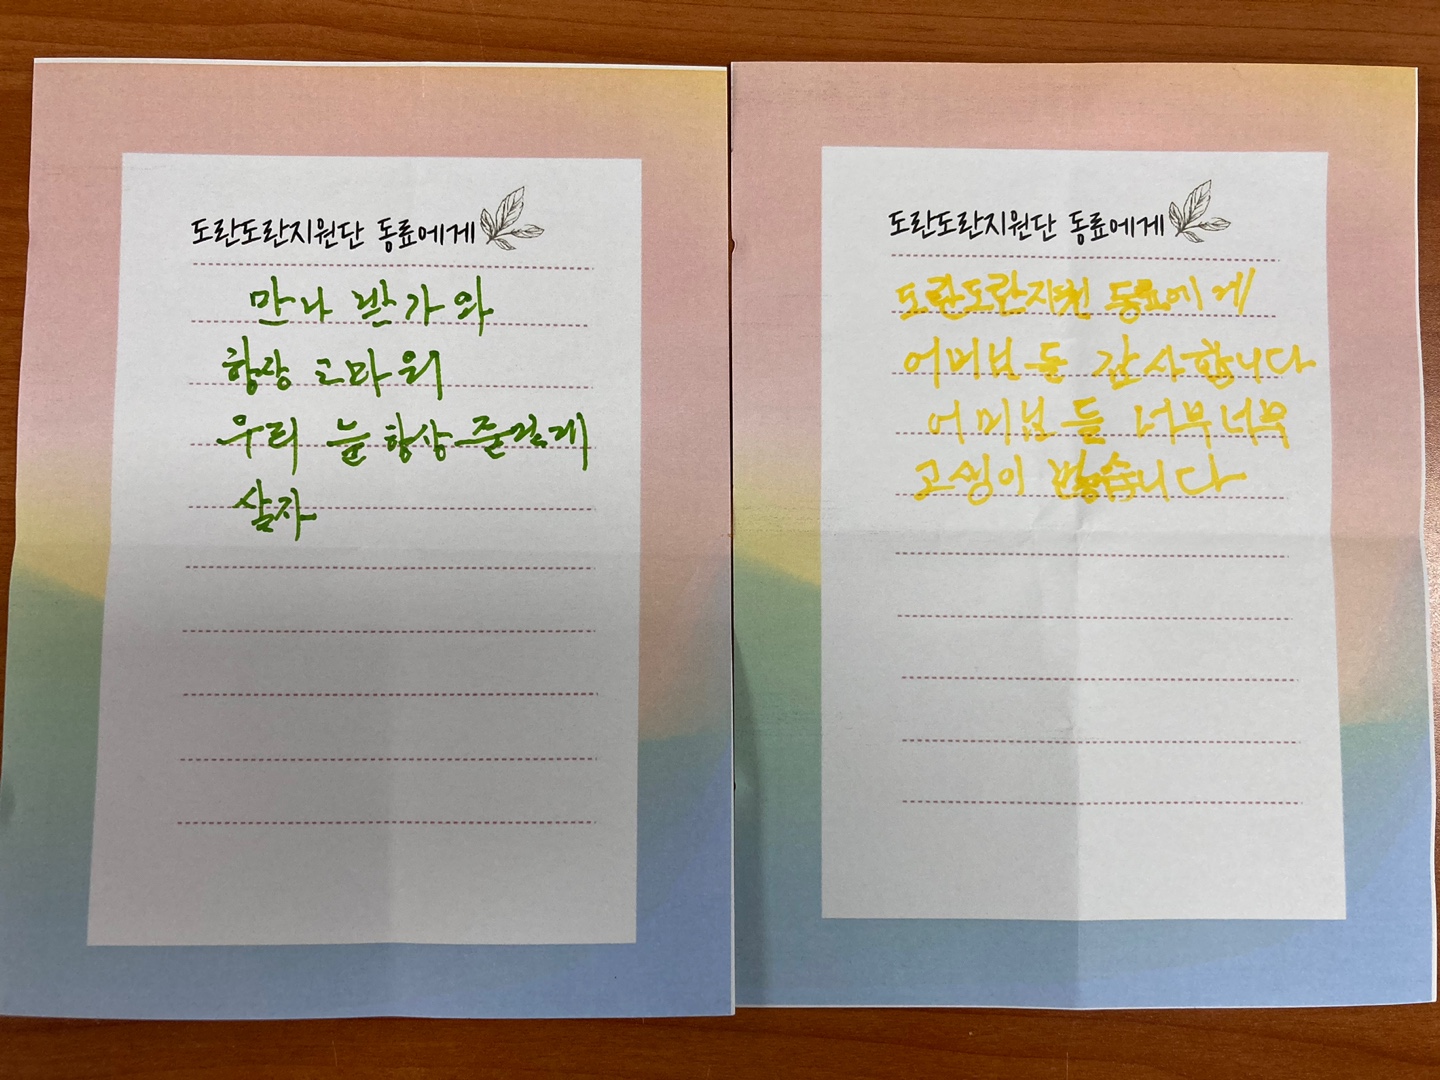 도란도란지원단 동료에게
만나 반가와
항상 고마워
우리 는 항상 즐겁게
살자
도란도란지원단 동료에게
도란도란지원 동료에게
어머님들 감사합니다
어머님들 너무너무
고생이 많습니다